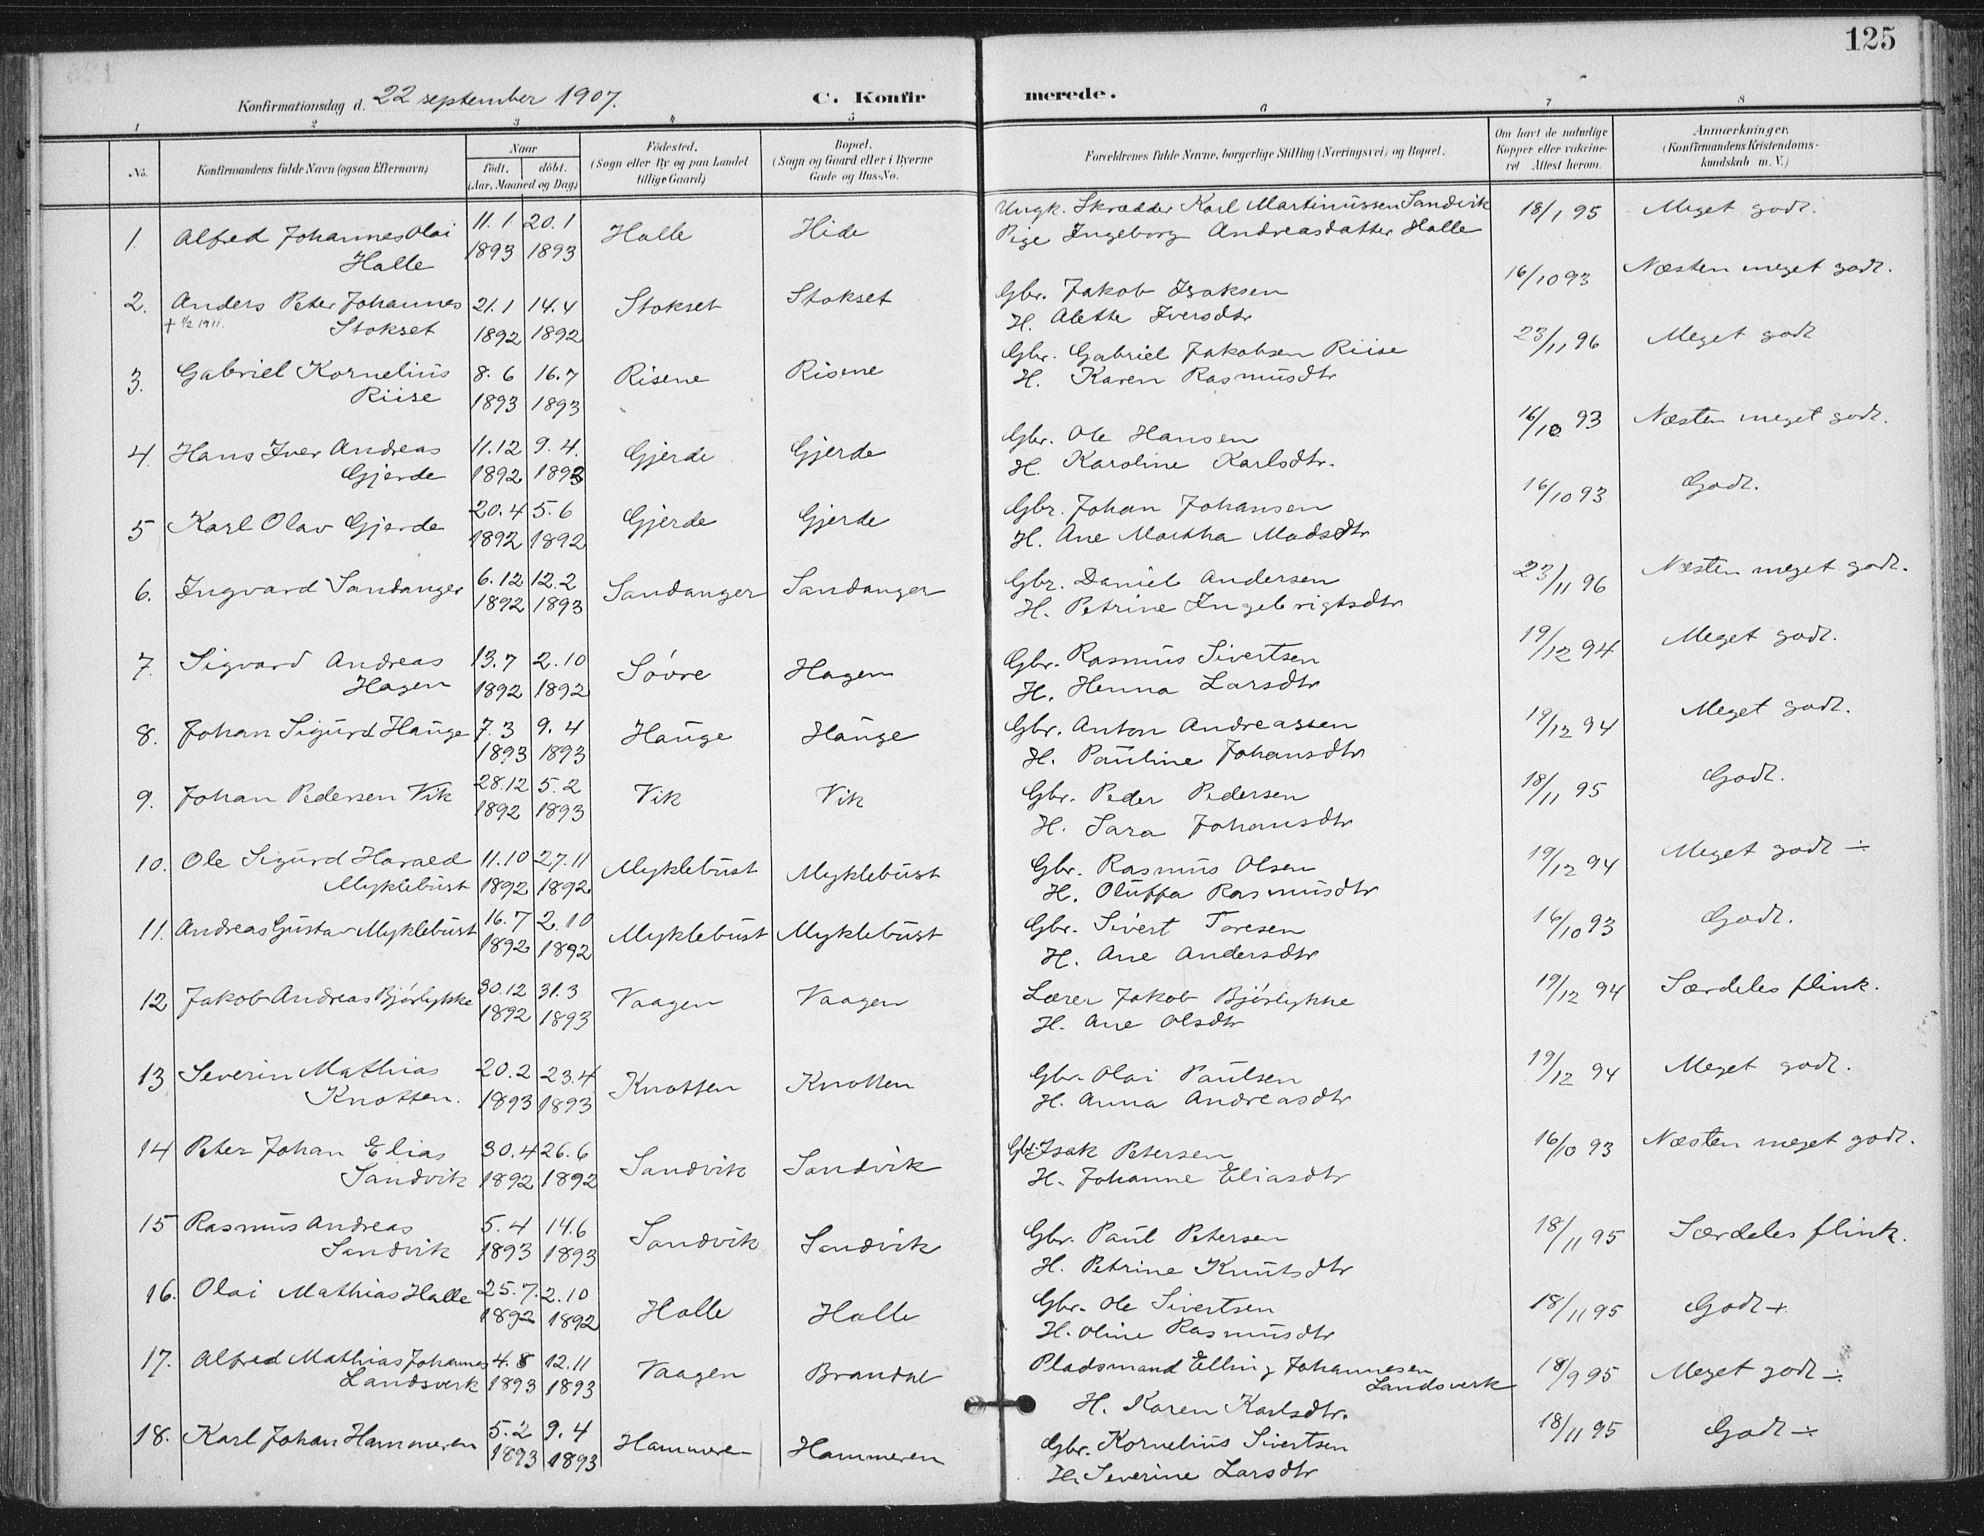 125
Konfirmationsdag d. 22 september 1907. C. Konfirmerede.
1 2 3 4 5 6 7 8
No. Konfirmandens fulde Navn (ogsaa Efternavn) Naar født. døbt. (Aar, Maaned og Dag) Fødested. (Sogn eller By og paa Landet tillige Gaard) Bopæl. (Sogn og Gaard eller i Byerne Gade og Hus-No. Forældrenes fulde Navne, borgerlige Stilling (Næringsvei) og Bopæl. Om havt de naturlige Kopper eller vakcineret Attest herom. Anmærkninger. (Konfirmandens Kristendomskundskab m. V.)
1. Alfred Johannes Olai 11.1 20.1 Halle Hide Ungk. Skrædder Karl Martinussen Sandvik 18/1 95 Meget godt.
Halle 1893 1893 Pige Ingeborg Andreasdatter Halle
2. Anders Peter Johannes 21.1 14.4 Stokset Stokset Gbr. Jakob Isaksen 16/10 93 Næsten meget godt.
† 1/2 1911. Stokset 1892 1892 H. Alette Iversdtr
3. Gabriel Kornelius 8.6 16.7 Risene Risene Gbr. Gabriel Jakobsen Riise 23/11 96 Meget godt
Riise 1893 1893 H. Karen Rasmusdtr
4. Hans Iver Andreas 11.12 9.4. Gjerde Gjerde Gbr. Ole Hansen 16/10 93 Næsten meget godt.
Gjerde 1892 1893 H. Karoline Karlsdtr.
5 Karl Olav Gjerde 20.4 5.6 Gjerde Gjerde Gbr. Johan Johansen 16/10 93 Godt.
1892 1892 H. Ane Martha Madsdtr
6. Ingvard Sandanger 6.12 12.2 Sandanger Sandanger Gbr. Daniel Andersen 23/11 96 Næsten meget godt.
1892 1893 H. Petrine Ingebrigtsdtr
7. Sigvard Andreas 13.7 2.10 Søvre Hagen Gbr. Rasmus Sivertsen 19/12 94 Meget godt.
Hagen 1892 1892 H. Henna Larsdtr
8. Johan Sigurd Hauge 7.3 9.4 Hauge Hauge Gbr. Anton Andreassen 19/12 94 Meget godt.
1893 1893 H. Pauline Johansdtr
9. Johan Pedersen Vik 28.12 5.2 Vik Vik Gbr. Peder Pedersen 18/11 95 Godt.
1892 1893 H. Sara Johansdtr
10. Ole Sigurd Harald 11.10 27.11 Myklebust Myklebust Gbr. Rasmus Olsen 19/12 94 Meget godt ÷
Myklebust 1892 1892 H. Oluffa Rasmusdtr
11. Andreas Gustav Myklebust 16.7 2.10 Myklebust Myklebust Gbr. Sivert Toresen 16/10 93 Godt.
1892 1892 H. Ane Andersdtr
12 Jakob Andreas Bjørlykke 30.12 31.3 Vaagen Vaagen Lærer Jakob Bjørlykke 19/12 94 Særdeles flink.
1892 1893 H. Ane Olsdtr
13 Severin Mathias 20.2 23.4 Knotten Knotten Gbr. Olai Paulsen 19/12 94 Meget godt.
Knotten. 1893 1893 H. Anna Andreasdtr
14 Peter Johan Elias 30.4 26.6 Sandvik Sandvik Gbr. Isak Petersen 16/10 93 Næsten meget godt.
Sandvik 1892 1892 H. Johanne Eliasdtr
15 Rasmus Andreas 5.4 14.6 Sandvik Sandvik Gbr. Paul Petersen 18/11 95 Særdeles flink.
Sandvik 1893 1893 H. Petrine Knutsdtr
16. Olai Mathias Halle 25.7. 2.10 Halle Halle Gbr. Ole Sivertsen 18/11 95 Godt +
1892 1892 H. Oline Rasmusdtr
17. Alfred Mathias Johannes 4.8 12.11 Vaagen Brandal Pladsmand Elling Johannesen 18/9 95 Meget godt ÷
Landsverk 1893 1893 Landsverk
H. Karen Karlsdtr.
18. Karl Johan Hammeren 5.2 9.4 Hammeren Hammeren Gbr. Kornelius Sivertsen 18/11 95 Godt ÷
1893 1893 H. Severine Larsdtr